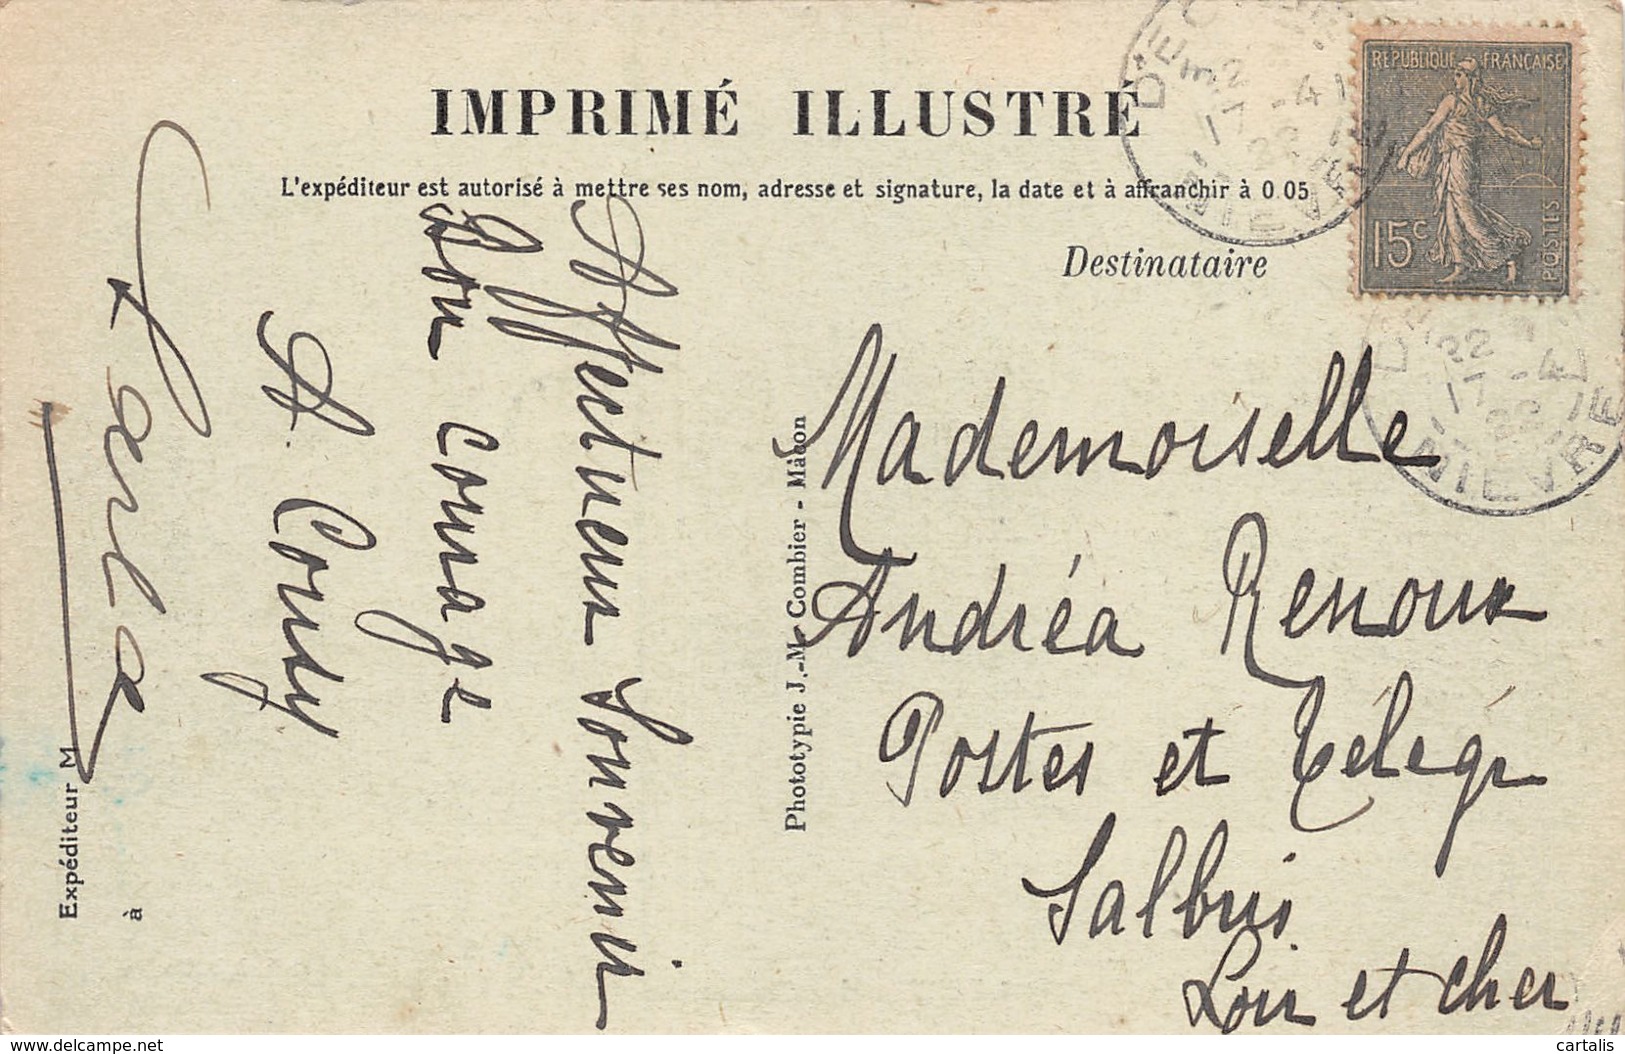 IMPRIMÉ ILLUSTRÉ
L'expéditeur est autorisé à mettre ses nom, adresse et signature, la date et à affranchir à 0.05
Destinataire
REPUBLIQUE FRANÇAISE
15c
POSTES
22
17 -4
22
NIEVRE
22
17 -4
22
NIEVRE
Affectueux Souvenir
Bon courage
A.
Expéditeur M
à
Phototypie J.-M. Combier - Mâcon
Mademoiselle
Andréa Renoux
Postes et Télégr
Salbris
Loir et cher
www.delcampe.net
cartalis